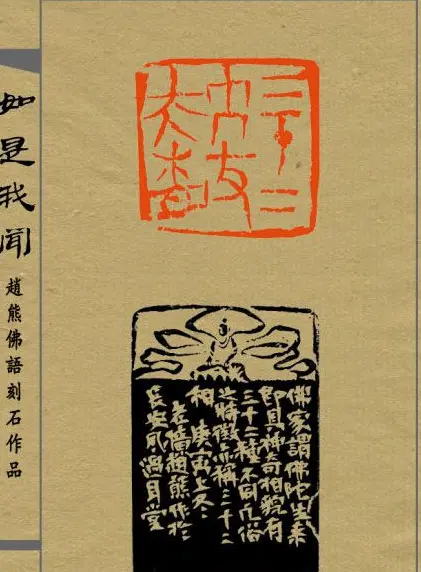 如是我聞
趙熊佛語刻石作品
三十二
佛家謂佛陀生來
即具神奇相貌有
三十二種不同凡俗
之特徵亦稱三十二
相 庚寅上冬
趙熊作於
長安風過耳堂